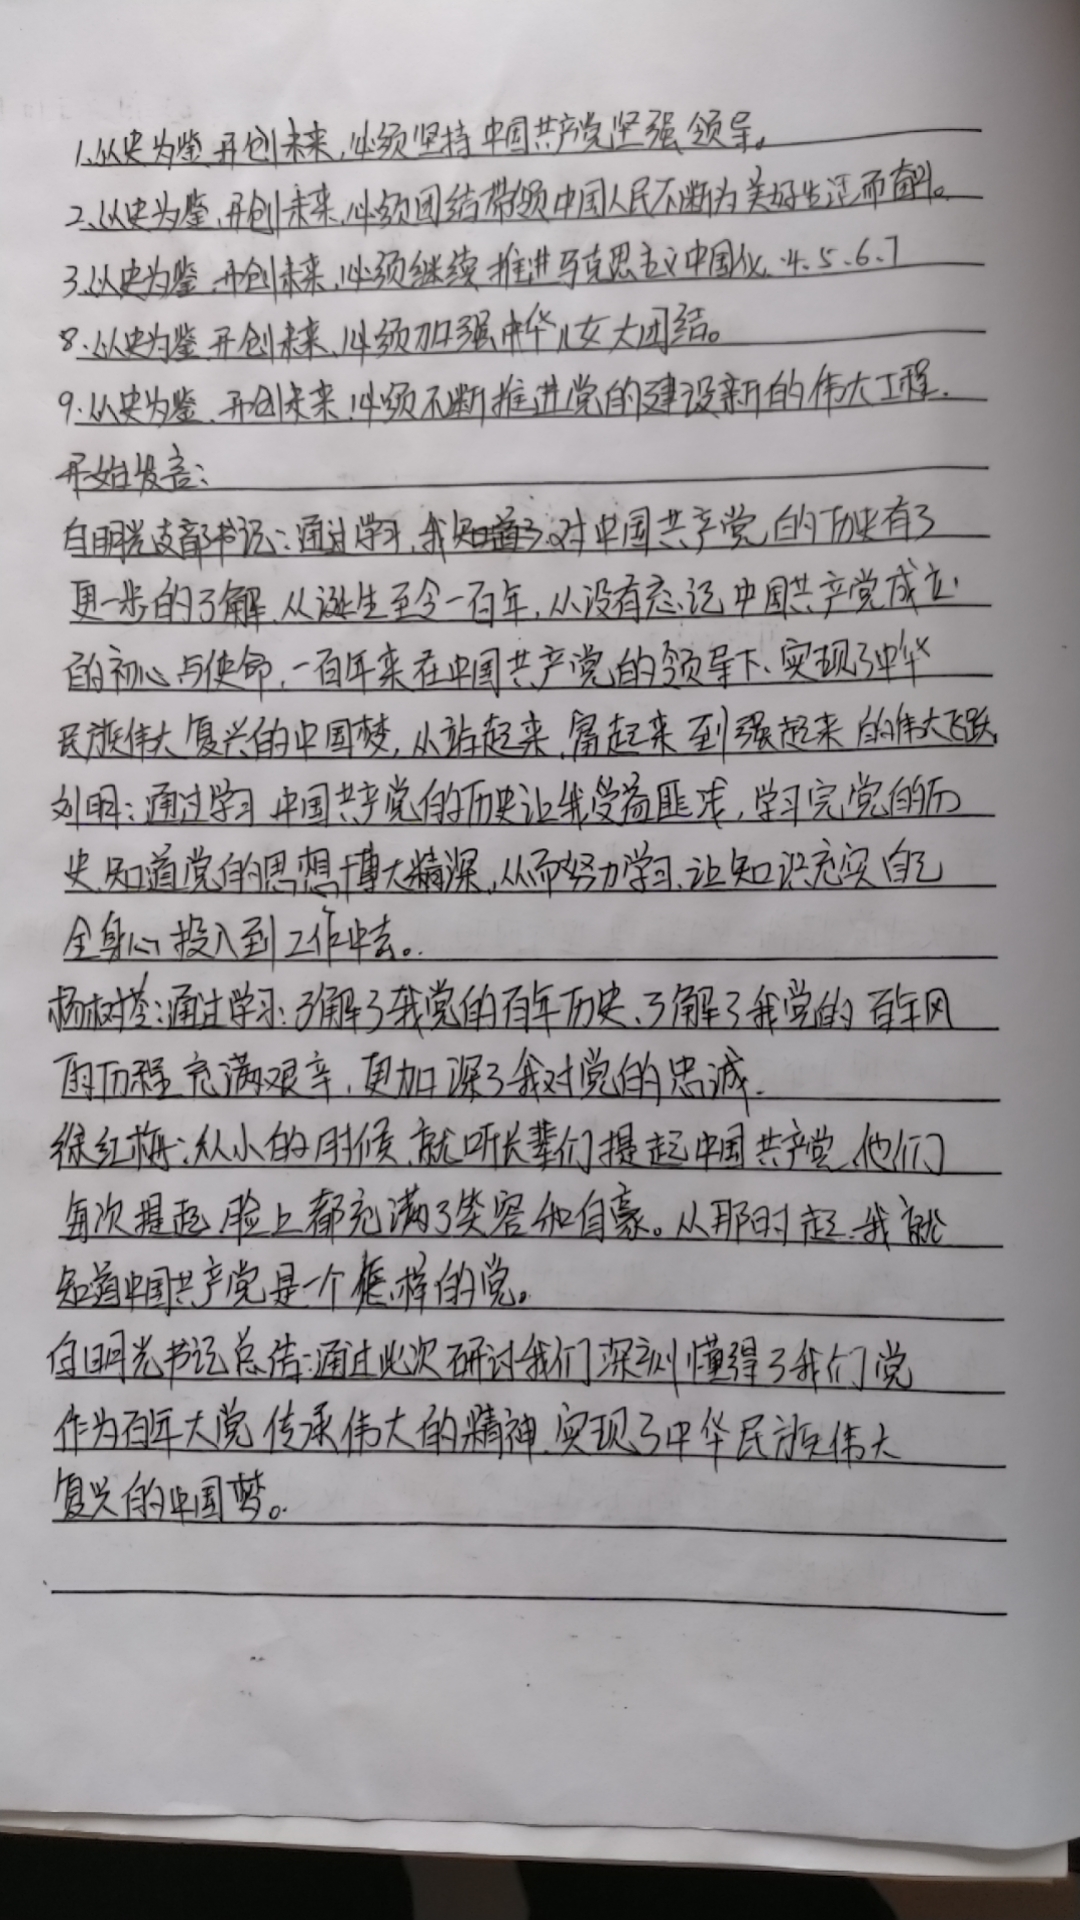 1、以史为鉴、开创未来,必须坚持中国共产党坚强领导。
2、以史为鉴、开创未来,必须团结带领中国人民不断为美好生活而奋斗。
3、以史为鉴、开创未来,必须继续推进马克思主义中国化、4、5、6、7
8、以史为鉴、开创未来、必须加强中华儿女大团结。
9、以史为鉴、开创未来,必须不断推进党的建设新的伟大工程.
开始发言:
白明光支部书记:通过学习,我对中国共产党的历史有了
更一步的了解,从诞生至今一百年,从没有忘记中国共产党成立
的初心与使命,一百年来在中国共产党的领导下、实现了中华
民族伟大复兴的中国梦,从站起来、富起来到强起来的伟大飞跃,
刘明:通过学习中国共产党的历史让我受益匪浅,学习完党的历
史,知道党的思想博大精深,从而努力学习、让知识充实自己
全身心投入到工作中去。
杨树:通过学习:了解了我党的百年历史、了解了我党的百年风
雨历程充满艰辛,更加深了我对党的忠诚.
徐红梅:从小的时候,就听长辈们提起中国共产党,他们
每次提起,脸上都充满了笑容和自豪。从那时起,我就
知道中国共产党是一个怎样的党。
白明光书记总结:通过此次研讨我们深刻懂得了我们党
作为百年大党传承伟大的精神、实现了中华民族伟大
复兴的中国梦。